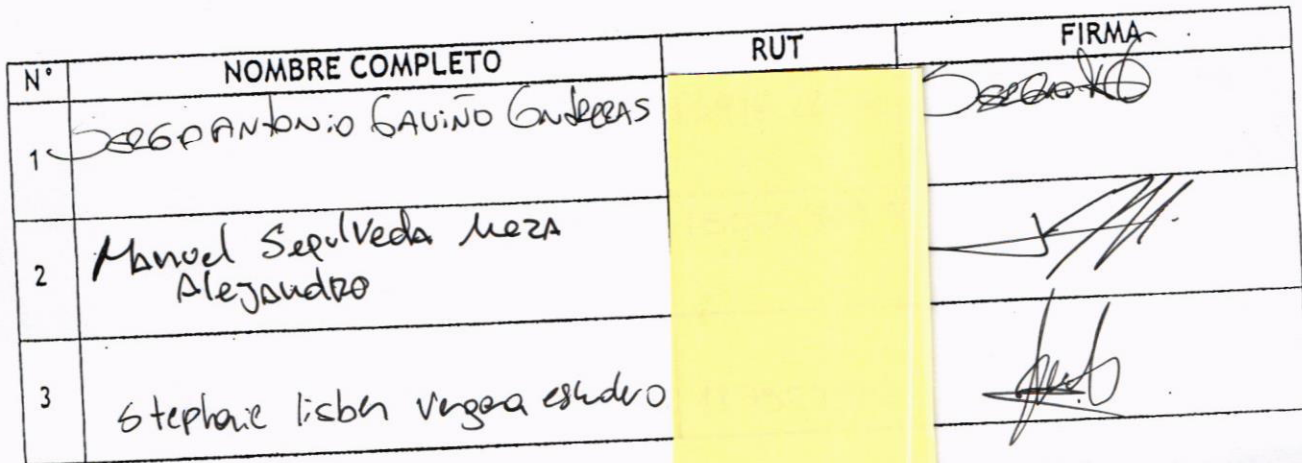 N° NOMBRE COMPLETO RUT FIRMA
1 SERGIO ANTONIO GAVIÑO CONTRERAS
2 Manuel Sepulveda Meza
Alejandro
3 Stephanie lisbeh Vergara escudero